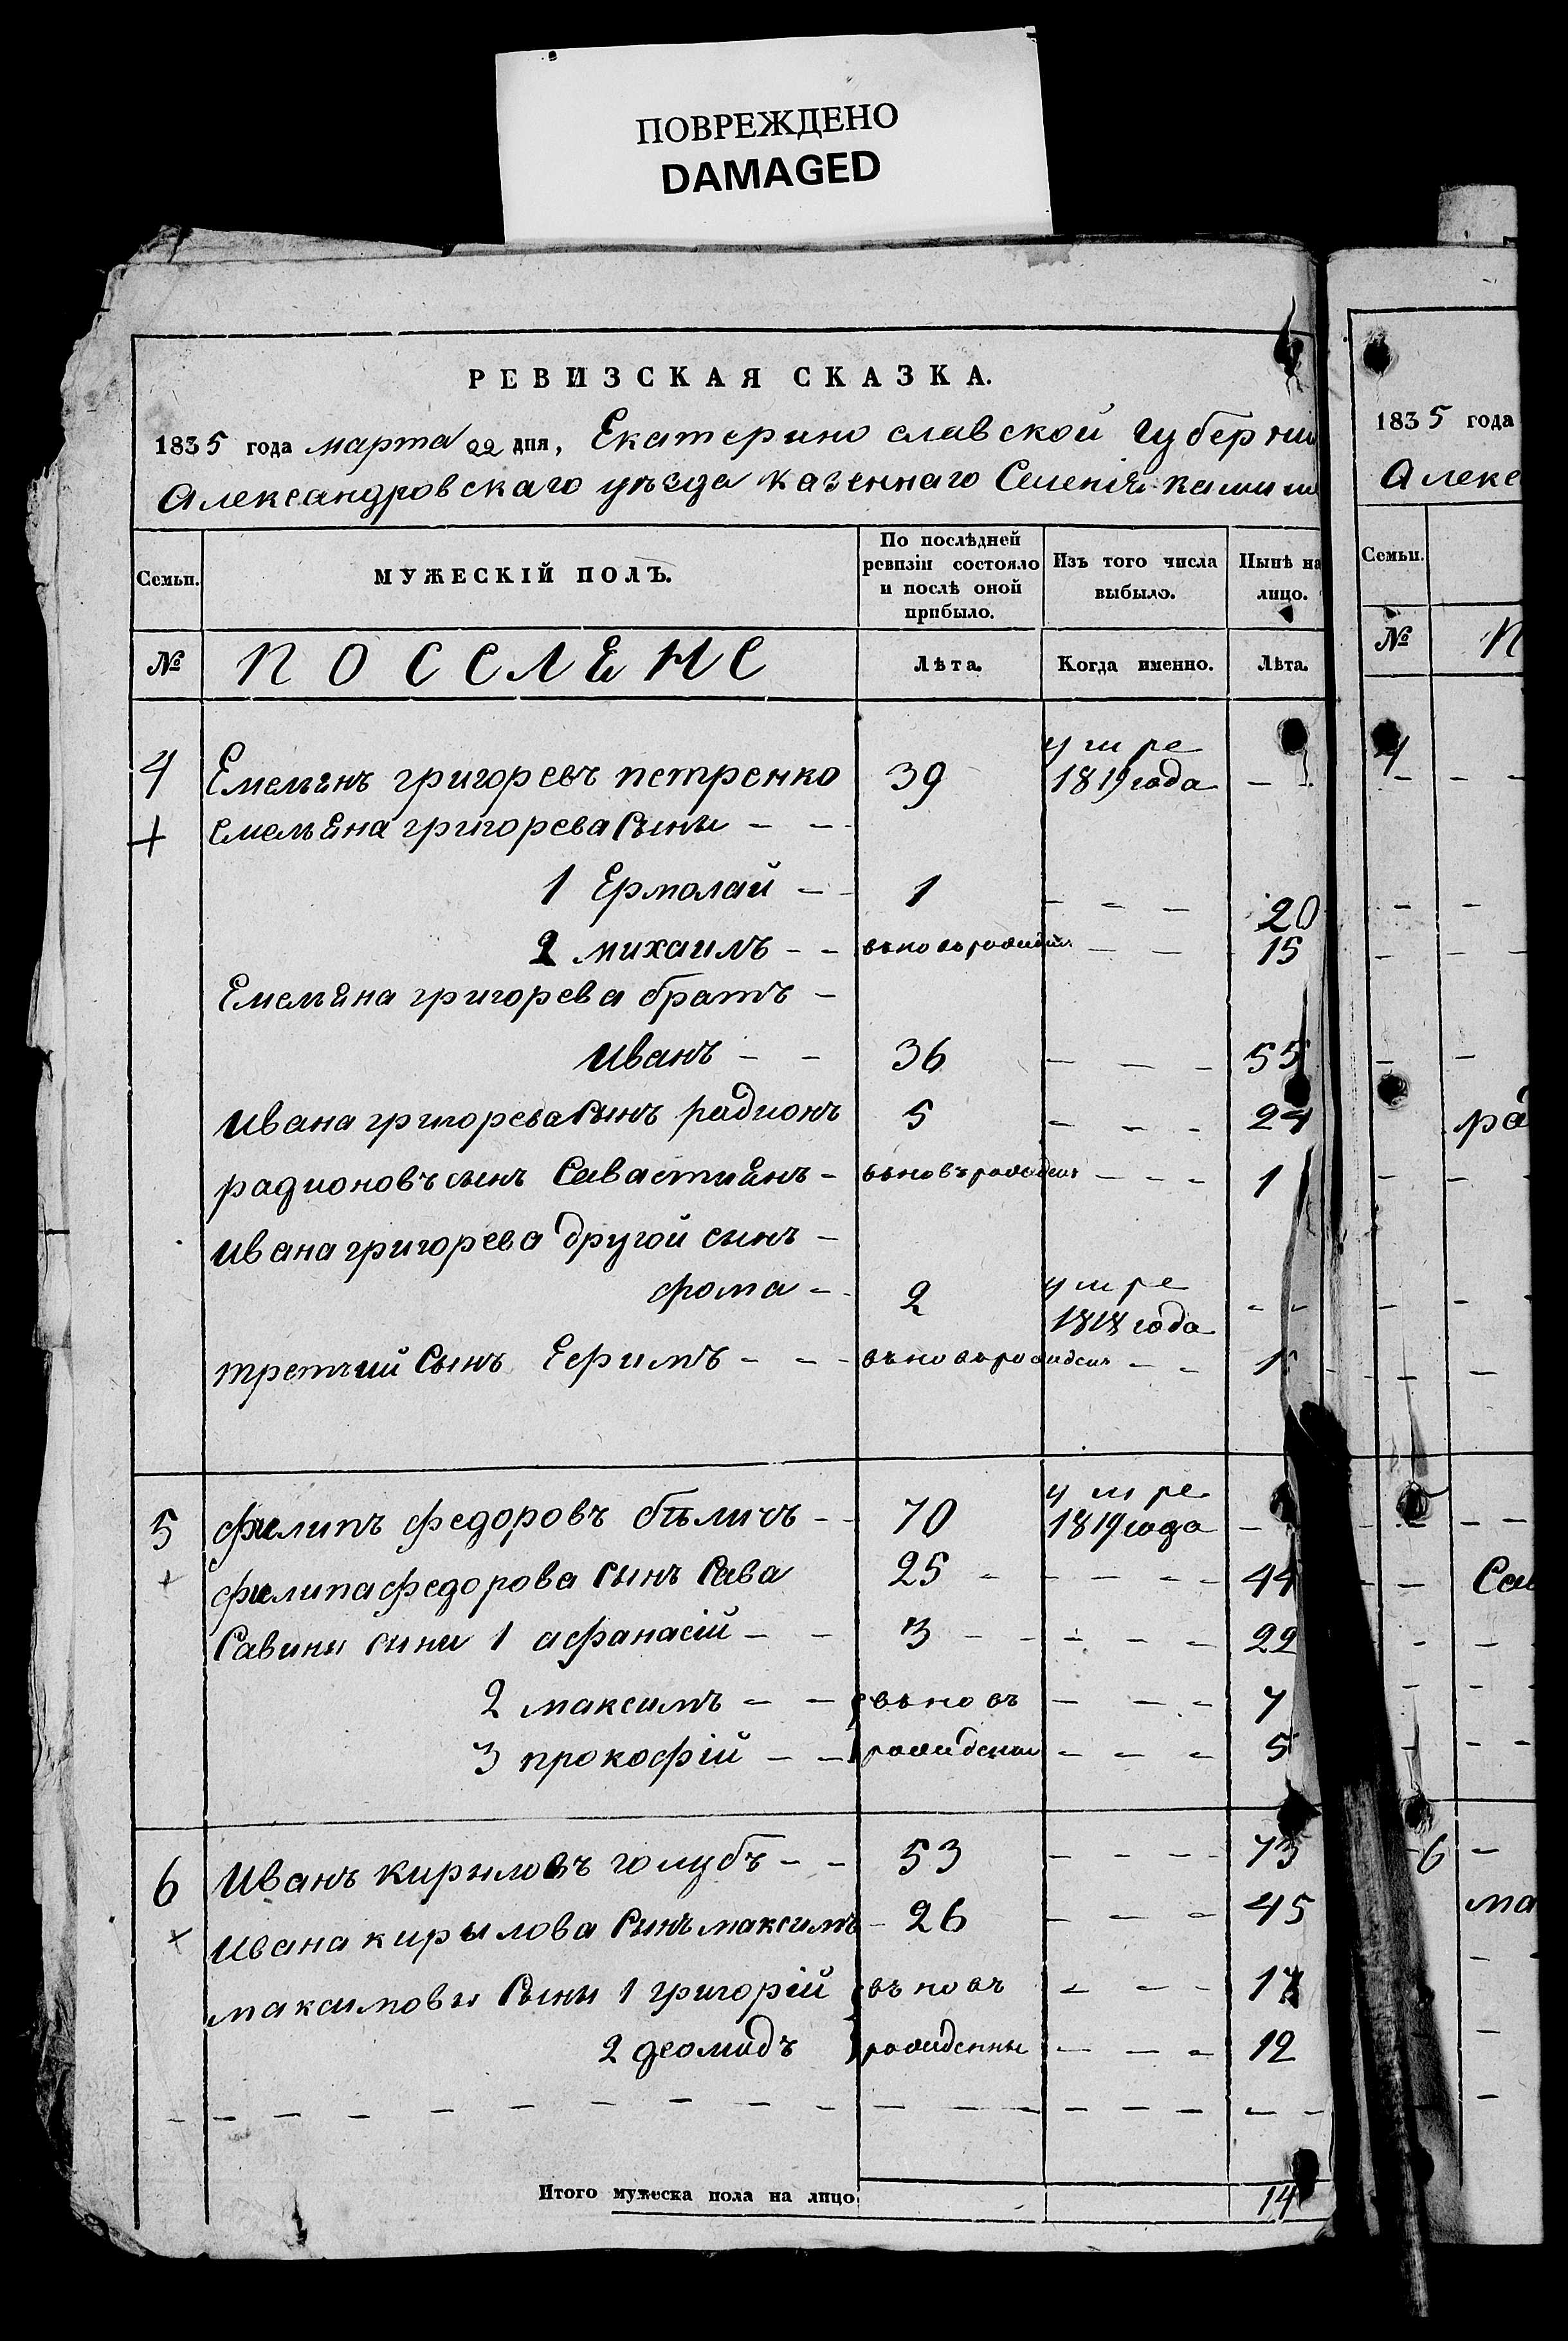 ПОВРЕЖДЕНО
DAMAGED
РЕВИЗСКАЯ СКАЗКА.
1835 года марта 22 дня, Екатерино славской губерни
Александровскаго уѣзда казеннаго Селенія
Семьи. МУЖЕСКІЙ ПОЛЪ. По послѣдней ревизіи состояло и послѣ оной прибыло. Изъ того числа выбыло. Нынѣ на лицо.
№ ПОСЕЛЯНЕ Лѣта. Когда именно. Лѣта.
4 Емелянъ григоревъ петренко 39 умре 1819 года - -
+ емеляна григорева Сыны - -
1 Ермолай - - 1 - - - 20
2 михаилъ - - вьновьрожденъ - - 15
Емеляна григорева братъ -
Иванъ - - 36 - - - 55
Ивана григорева Сынъ радионъ 5 - - - 24
радионовъ сынъ Савастиянъ - вьновърожденъ - - - 1
Ивана григорева другой сынъ -
фома - - 2 умре 1818 года - -
третий Сынъ Ефимъ - - - вьновьрожденъ - -
5 филипъ федоровъ бѣличъ - - 70 умре 1819 года -
+ филипа федорова Сынъ Сава 25 - - - - - 44
Савины сыны 1 афанасій - - 3 - - - - - 22
2 максимъ - - вьновъ - - - 7
3 прокофій - - рожденны - - - 5
6 Иванъ кирыловъ голубъ - - 53 - - - - 73
+ Ивана кирылова Сынъ максимъ - 26 - - - 45
максимовы Сыны 1 григорій вьновъ - - -
2 деомидъ рожденны - - - 12
Итого мужеска пола на лицо 14
1835 года
Алекс
Семьи.
№ П
4
ра
Сав
6
ма